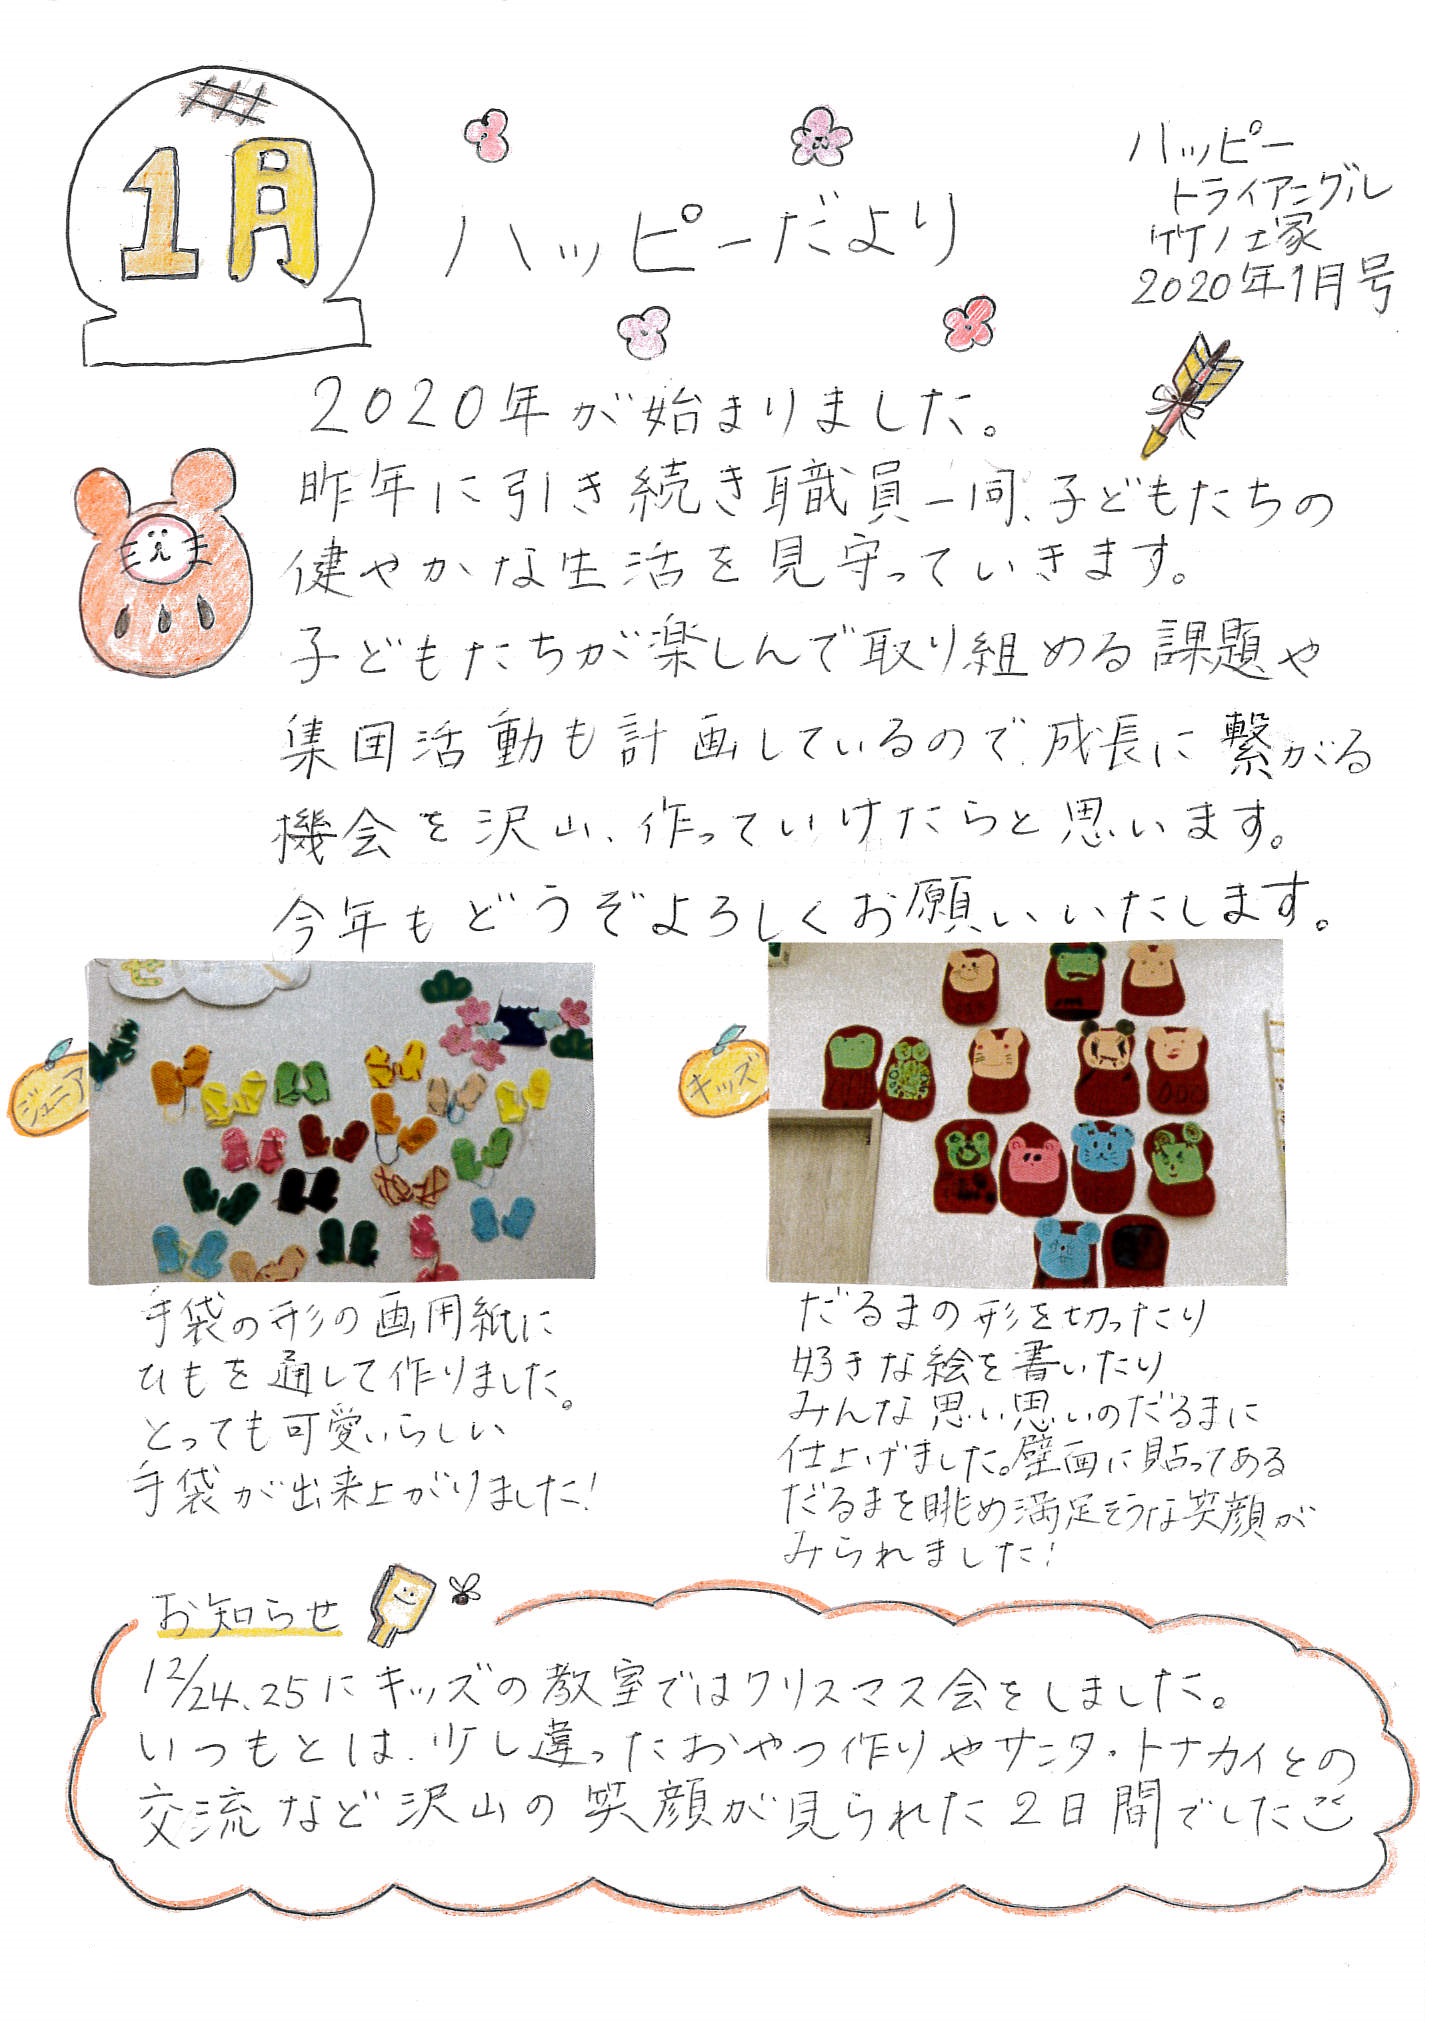 1月
ハッピーだより
ハッピー
トライアングル
竹ノ塚
2020年1月号
2020年が始まりました。
昨年に引き続き職員一同、子どもたちの
健やかな生活を見守っていきます。
子どもたちが楽しんで取り組める課題や
集団活動も計画しているので、成長に繋がる
機会を沢山、作っていけたらと思います。
今年もどうぞよろしくお願いいたします。
ジュニア
手袋の形の画用紙に
ひもを通して作りました。
とっても可愛いらしい
手袋が出来上がりました!
キッズ
だるまの形を切ったり
好きな絵を書いたり
みんな思い思いのだるまに
仕上げました。壁面に貼ってある
だるまを眺め満足そうな笑顔が
みられました!
お知らせ
12/24.25にキッズの教室ではクリスマス会をしました。
いつもとは、少し違ったおやつ作りやサンタ・トナカイとの
交流など沢山の笑顔が見られた2日間でした